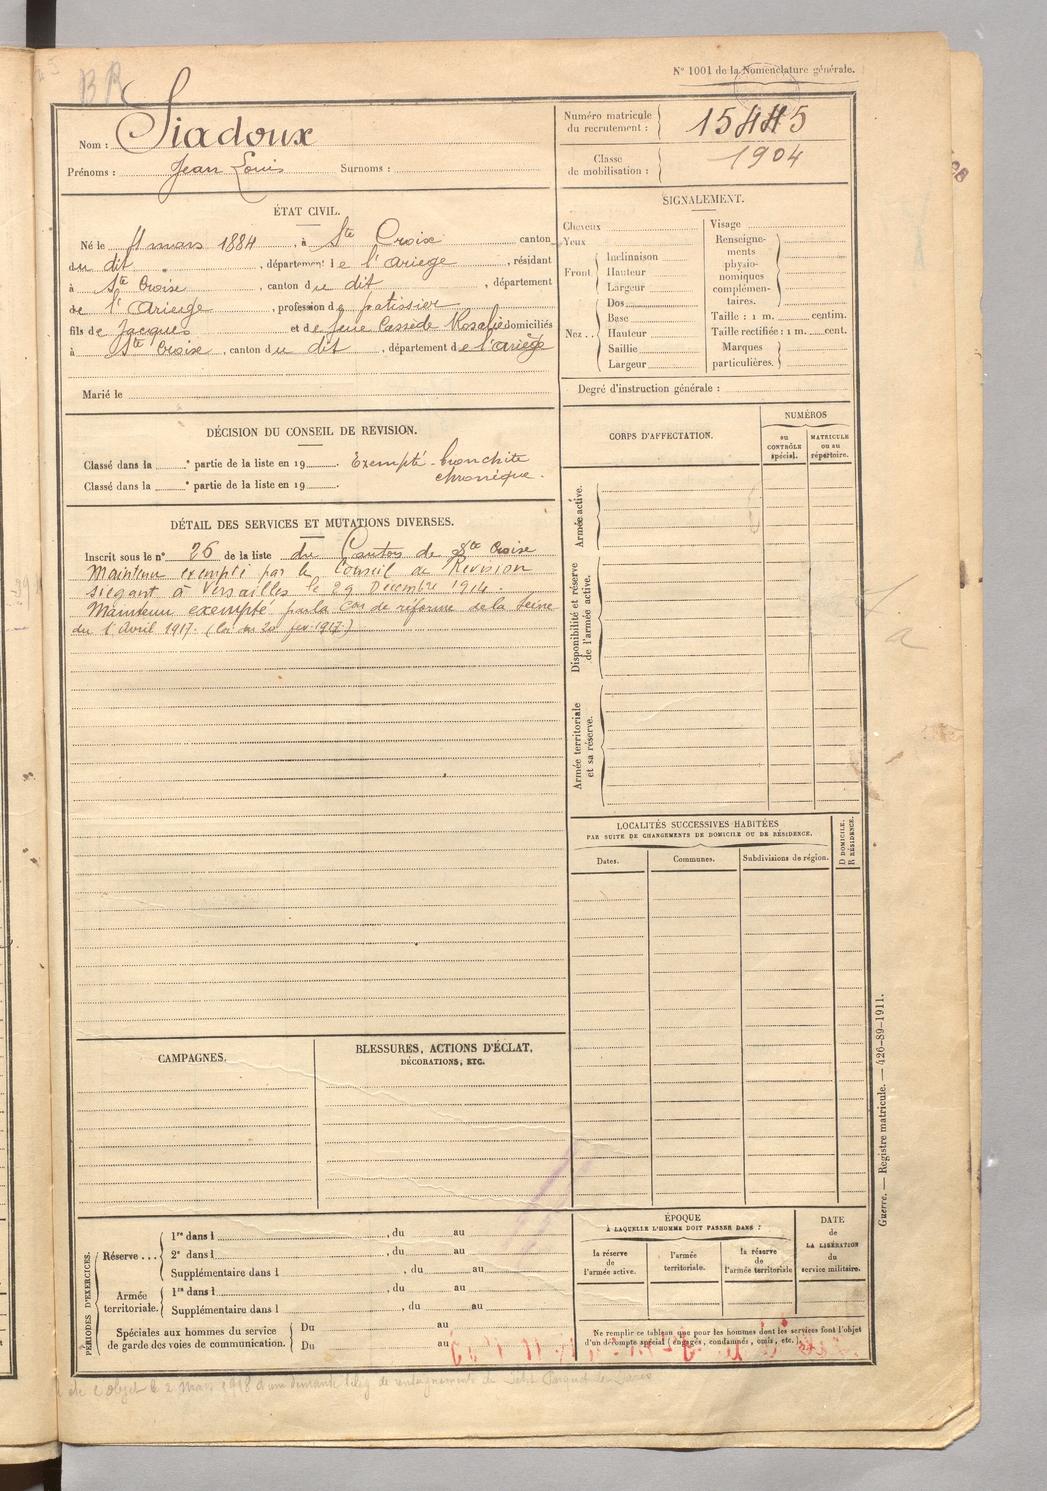 BR
N° 1001 de la Nomenclature générale.
Nom : Siadoux
Prénoms : Jean Louis Surnoms :
Numéro matricule du recrutement : 15445
Classe de mobilisation : 1904
ÉTAT CIVIL.
Né le 4 mars 1884, à Ste Croix canton
du dit, département de l'Ariège, résidant
à Ste Croise, canton du dit, département
de l'Ariege, profession de patissier
fils de Jacques et de feue Cassède Rosalie domiciliés
à Ste Croise, canton du dit, département de l'Ariège
Marié le
SIGNALEMENT.
Cheveux
Yeux
Front
Inclinaison
Hauteur
Largeur
Nez . .
Dos
Base
Hauteur
Saillie
Largeur
Visage
Renseignements physionomiques complémentaires.
Taille : 1 m. centim.
Taille rectifiée : 1 m. cent.
Marques particulières.
Degré d'instruction générale :
DÉCISION DU CONSEIL DE REVISION.
Classé dans la e partie de la liste en 19 . Exempté - bronchite
Classé dans la e partie de la liste en 19 . chronique.
DÉTAIL DES SERVICES ET MUTATIONS DIVERSES.
Inscrit sous le n° 26 de la liste du Canton de Ste Croise
Maintenu exempté par le Conseil de Revision
siégant à Versailles le 29 Décembre 1914.
Maintenu exempté par la Con de réforme de la Seine
du 1 Avril 1917. (loi du 20 fev. 1917.)
CORPS D'AFFECTATION.
NUMÉROS
au CONTRÔLE spécial.
MATRICULE ou au répertoire.
Armée active.
Disponibilité et réserve de l'armée active.
Armée territoriale et sa réserve.
LOCALITÉS SUCCESSIVES HABITÉES
PAR SUITE DE CHANGEMENTS DE DOMICILE OU DE RÉSIDENCE.
Dates.
Communes.
Subdivisions de région.
D DOMICILE.
R RÉSIDENCE.
CAMPAGNES.
BLESSURES, ACTIONS D'ÉCLAT,
DÉCORATIONS, ETC.
PÉRIODES D'EXERCICES.
Réserve . . .
1re dans l , du au
2e dans l , du au
Supplémentaire dans l , du au
Armée territoriale.
1re dans l , du au
Supplémentaire dans l , du au
Spéciales aux hommes du service de garde des voies de communication.
Du au
Du au
ÉPOQUE
À LAQUELLE L'HOMME DOIT PASSER DANS :
la réserve de l'armée active.
l'armée territoriale.
la réserve de l'armée territoriale
DATE de LA LIBÉRATION du service militaire.
Ne remplir ce tableau que pour les hommes dont les services font l'objet
d'un décompte spécial (engagés, condamnés, omis, etc.)
Guerre. — Registre matricule. — 426-89-1911.
objet le 2 Mars 1918 d'une demande de renseignements du Petit Parquet de Paris